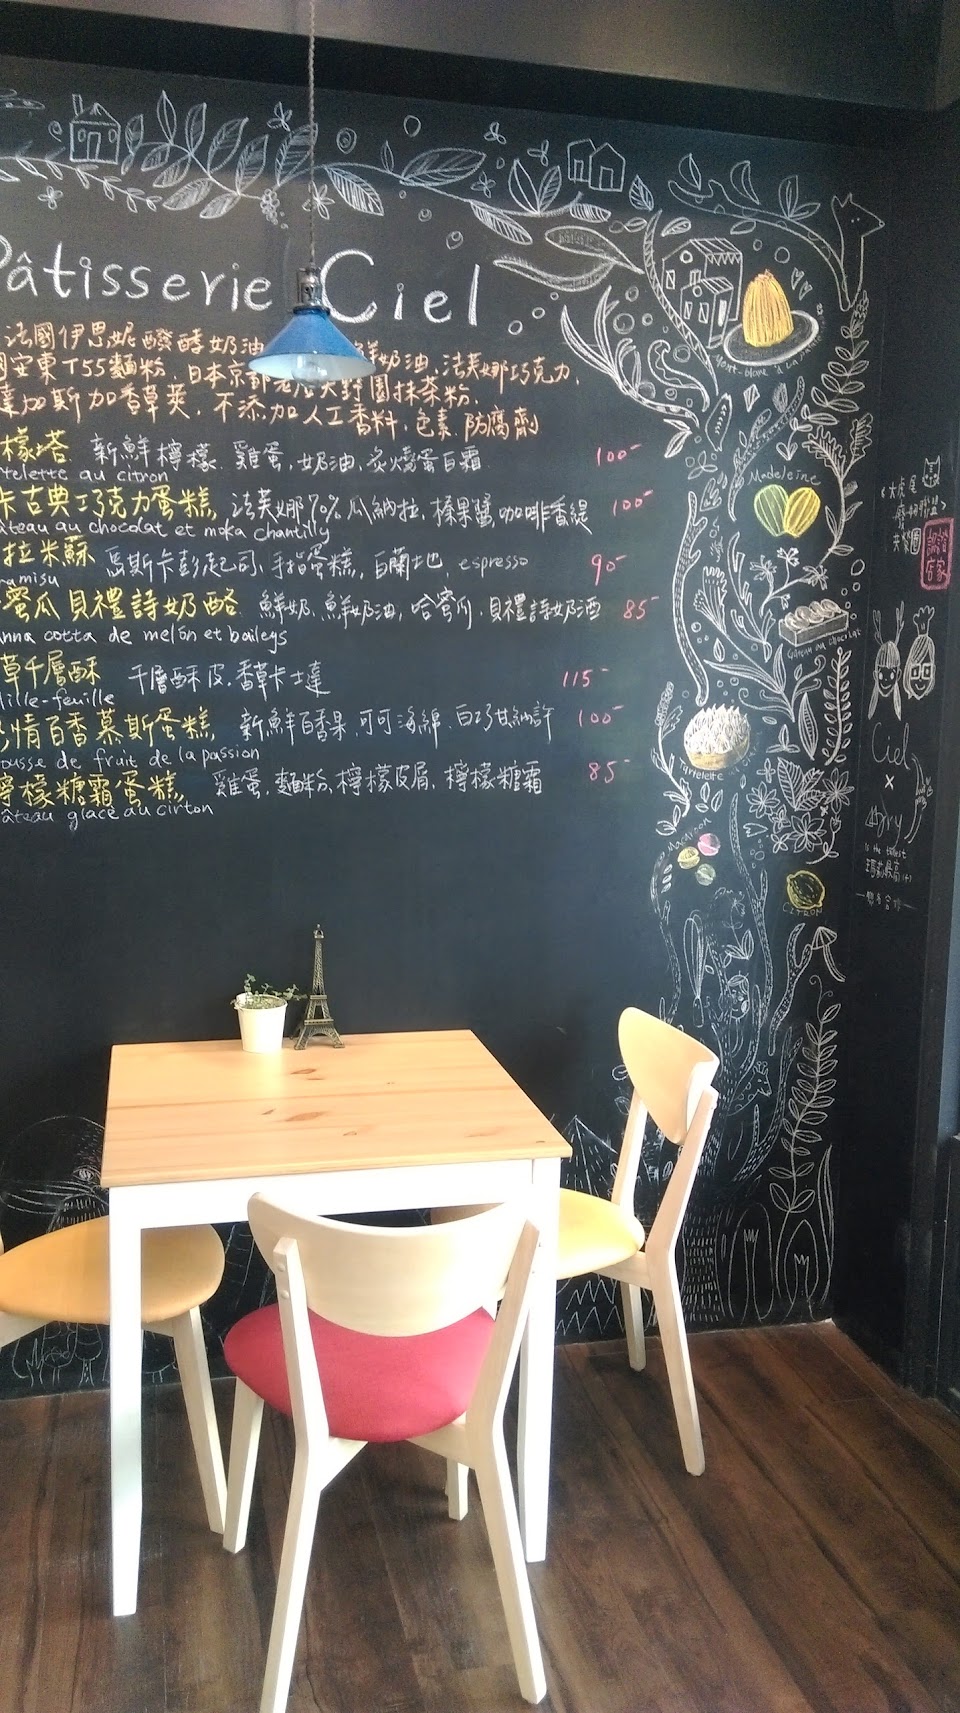 Pâtisserie Ciel
法國伊思妮醱酵奶油 鮮奶油.法芙娜巧克力.
安東T55麵粉.日本京都 大野園抹茶粉.
達加斯加香草莢.不添加人工香料.色素.防腐劑
檬塔 新鮮檸檬.雞蛋.奶油.炙燒蛋白霜 100-
telette au citron
卡古典巧克力蛋糕, 法芙娜70%瓜納拉.榛果醬.咖啡香緹 100-
âteau au chocolat et moka chantilly
拉米蘇 馬斯卡彭起司.手指蛋糕.白蘭地 espresso 90-
ramisu
蜜瓜貝禮詩奶酪 鮮奶.鮮奶油.哈蜜瓜.貝禮詩奶酒 85-
anna cotta de melon et baileys
草千層酥 千層酥皮.香草卡士達 115-
ille-feuille
情百香慕斯蛋糕, 新鮮百香果.可可海綿.白巧甘納許 100-
ousse de fruit de la passion
檸檬糖霜蛋糕, 雞蛋.麵粉.檸檬皮屑.檸檬糖霜 85-
âteau glace au cirton
Mont-blanc à la
Madeleine
Gâteau au chocolat
Tartelette au
Macaroon
CITRON
Ciel
x
is the tallest